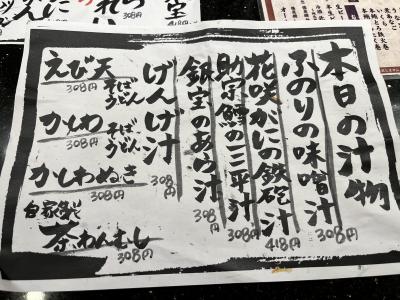 本日の汁物
ふのりの味噌汁 308円
花咲がにの鉄砲汁 418円
助宗鱈の三平汁 308円
銀宝のあら汁 308円
げんげ汁 308円
えび天 そば うどん 308円
かしわ そば うどん 308円
かしわぬき 308円
自家製
茶わんむし 308円